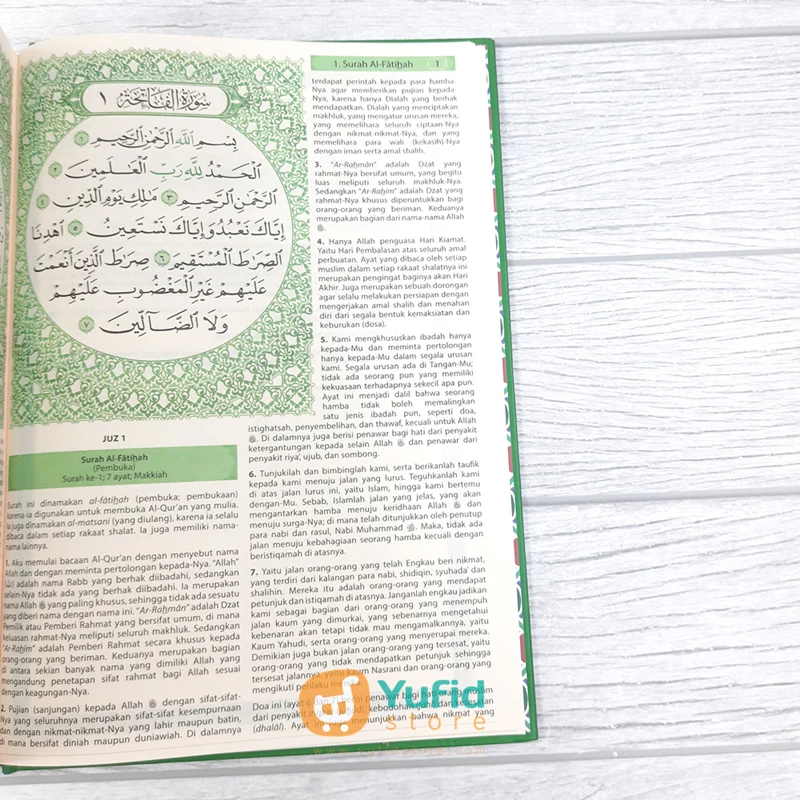 1. Surah Al-Fâtiẖah 1
سُورَةُ الْفَاتِحَةِ ١
بِسْمِ اللَّهِ الرَّحْمَٰنِ الرَّحِيمِ ١
الْحَمْدُ لِلَّهِ رَبِّ الْعَالَمِينَ ٢
الرَّحْمَٰنِ الرَّحِيمِ ٣ مَالِكِ يَوْمِ الدِّينِ ٤
إِيَّاكَ نَعْبُدُ وَإِيَّاكَ نَسْتَعِينُ ٥ اهْدِنَا
الصِّرَاطَ الْمُسْتَقِيمَ ٦ صِرَاطَ الَّذِينَ أَنْعَمْتَ
عَلَيْهِمْ غَيْرِ الْمَغْضُوبِ عَلَيْهِمْ
وَلَا الضَّالِّينَ ٧
JUZ 1
Surah Al-Fâtiẖah
(Pembuka)
Surah ke-1; 7 ayat; Makkiah
Surah ini dinamakan al-fâtiẖah (pembuka; pembukaan)
karena ia digunakan untuk membuka Al-Qur'an yang mulia.
Ia juga dinamakan al-matsani (yang diulang), karena ia selalu
dibaca dalam setiap rakaat shalat. Ia juga memiliki nama-
nama lainnya.
1. Aku memulai bacaan Al-Qur'an dengan menyebut nama
Allah dan dengan meminta pertolongan kepada-Nya. "Allah"
(الله) adalah nama Rabb yang berhak diibadahi, sedangkan
selain-Nya tidak ada yang berhak diibadahi. Ia merupakan
nama Allah ﷻ yang paling khusus, sehingga tidak ada sesuatu
yang diberi nama dengan nama ini. "Ar-Raẖmân" adalah Dzat
Pemilik atau Pemberi Rahmat yang bersifat umum, di mana
keluasan rahmat-Nya meliputi seluruh makhluk. Sedangkan
"Ar-Raẖim" adalah Pemberi Rahmat secara khusus kepada
orang-orang yang beriman. Keduanya merupakan bagian
di antara sekian banyak nama yang dimiliki Allah yang
mengandung penetapan sifat rahmat bagi Allah sesuai
dengan keagungan-Nya.
2. Pujian (sanjungan) kepada Allah ﷻ dengan sifat-sifat-
Nya yang seluruhnya merupakan sifat-sifat kesempurnaan
dan dengan nikmat-nikmat-Nya yang lahir maupun batin,
di mana bersifat diniah maupun duniawiah. Di dalamnya
terdapat perintah kepada para hamba-
Nya agar memberikan pujian kepada-
Nya, karena hanya Dialah yang berhak
mendapatkan. Dialah yang menciptakan
makhluk, yang mengatur urusan mereka,
yang memelihara seluruh ciptaan-Nya
dengan nikmat-nikmat-Nya, dan yang
memelihara para wali (kekasih)-Nya
dengan iman serta amal shalih.
3. "Ar-Raẖmân" adalah Dzat yang
rahmat-Nya bersifat umum, yang begitu
luas meliputi seluruh makhluk-Nya.
Sedangkan "Ar-Raẖim" adalah Dzat yang
rahmat-Nya khusus diperuntukkan bagi
orang-orang yang beriman. Keduanya
merupakan bagian dari nama-nama Allah
ﷻ.
4. Hanya Allah penguasa Hari Kiamat.
Yaitu Hari Pembalasan atas seluruh amal
perbuatan. Ayat yang dibaca oleh setiap
muslim dalam setiap rakaat shalatnya ini
merupakan pengingat baginya akan Hari
Akhir. Juga merupakan sebuah dorongan
agar selalu melakukan persiapan dengan
mengerjakan amal shalih dan menahan
diri dari segala bentuk kemaksiatan dan
keburukan (dosa).
5. Kami mengkhususkan ibadah hanya
kepada-Mu dan meminta pertolongan
hanya kepada-Mu dalam segala urusan
kami. Segala urusan ada di Tangan-Mu;
tidak ada seorang pun yang memiliki
kekuasaan terhadapnya sekecil apa pun.
Ayat ini menjadi dalil bahwa seorang
hamba tidak boleh memalingkan
satu jenis ibadah pun, seperti doa,
istighatsah, penyembelihan, dan thawaf, kecuali untuk Allah
ﷻ. Di dalamnya juga berisi penawar bagi hati dari penyakit
ketergantungan kepada selain Allah ﷻ dan penawar dari
penyakit riya', ujub, dan sombong.
6. Tunjukilah dan bimbinglah kami, serta berikanlah taufik
kepada kami menuju jalan yang lurus. Teguhkanlah kami
di atas jalan lurus ini, yaitu Islam, hingga kami bertemu
dengan-Mu. Sebab, Islamlah jalan yang jelas, yang akan
mengantarkan hamba menuju keridhaan Allah ﷻ dan
menuju surga-Nya; di mana telah ditunjukkan oleh penutup
para nabi dan rasul, Nabi Muhammad ﷺ. Maka, tidak ada
jalan menuju kebahagiaan seorang hamba kecuali dengan
beristiqamah di atasnya.
7. Yaitu jalan orang-orang yang telah Engkau beri nikmat,
yang terdiri dari kalangan para nabi, shidiqin, syuhada' dan
shalihin. Mereka itu adalah orang-orang yang mendapat
petunjuk dan istiqamah di atasnya. Janganlah engkau jadikan
kami sebagai bagian dari orang-orang yang menempuh
jalan kaum yang dimurkai, yang sebenarnya mengetahui
kebenaran akan tetapi tidak mau mengamalkannya, yaitu
Kaum Yahudi, serta orang-orang yang menyerupai mereka.
Demikian juga bukan jalan orang-orang yang tersesat, yaitu
orang-orang yang tidak mendapatkan petunjuk sehingga
tersesat jalannya, yaitu Nasrani dan orang-orang yang
mengikuti perilaku
Doa ini (ayat 6 dan 7) berisi penawar bagi
dari penyakit kebodohan, dan kesesatan
(dhalâl). Ayat menunjukkan bahwa nikmat yang
Yufid
store